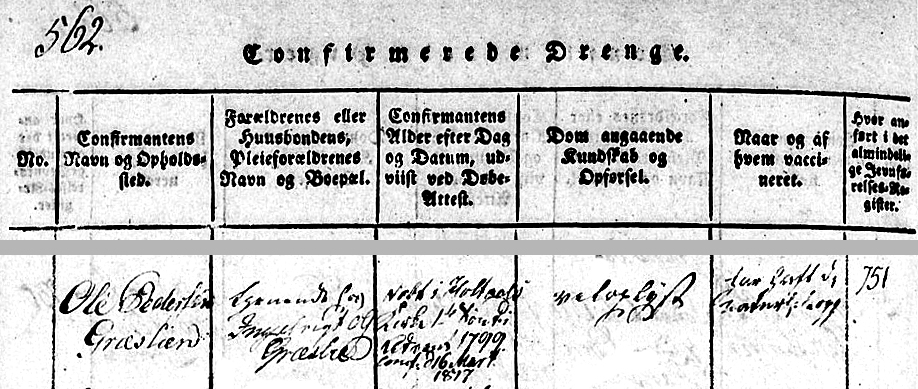 562.
Confirmerede Drenge.
No.
Confirmantens
Navn og Opholds-
sted.
Forældrenes eller
Huusbondens,
Pleieforældrenes
Navn og Boepæl.
Confirmantens
Alder efter Dag
og Datum, ud-
viist ved Døbe-
Attest.
Dom angaaende
Kundskab og
Opførsel.
Naar og af
hvem vacci-
neret.
Hvor an-
ført i det
almindeli-
ge Jevnfø-
relses-Re-
gister.
Ole Pedersen
Græslien
tjenende hos
og
født i
Kirke 1
1799
conf. d 16 Mart.
1817
veloplyst
har haft de
751